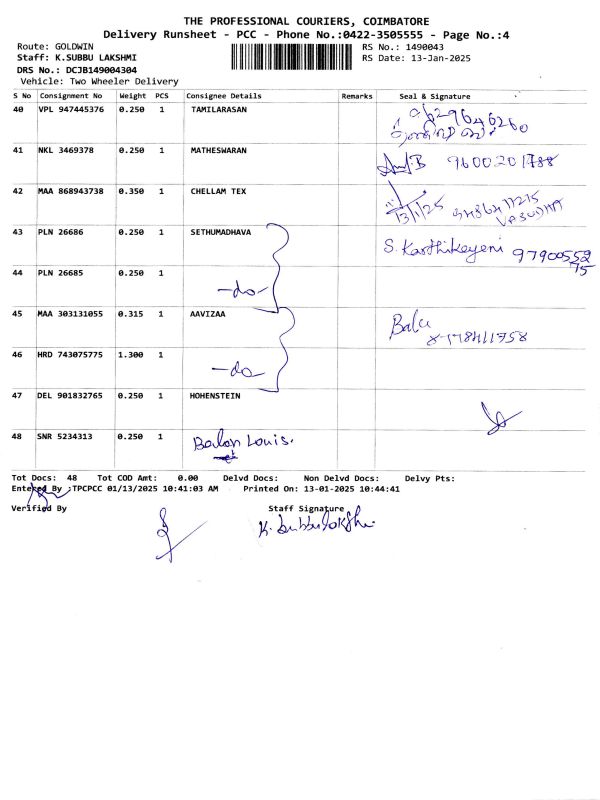 THE PROFESSIONAL COURIERS, COIMBATORE
Delivery Runsheet - PCC - Phone No.:0422-3505555 - Page No.:4
Route: GOLDWIN RS No.: 1490043
Staff: K.SUBBU LAKSHMI RS Date: 13-Jan-2025
DRS No.: DCJB149004304
Vehicle: Two Wheeler Delivery
S No Consignment No Weight PCS Consignee Details Remarks Seal & Signature
40 VPL 947445376 0.250 1 TAMILARASAN
41 NKL 3469378 0.250 1 MATHESWARAN 9600201788
42 MAA 868943738 0.350 1 CHELLAM TEX 13/1/25
43 PLN 26686 0.250 1 SETHUMADHAVA S. Karthikeyeni 9790055275
44 PLN 26685 0.250 1 -do-
45 MAA 303131055 0.315 1 AAVIZAA Bala
46 HRD 743075775 1.300 1 -do-
47 DEL 901832765 0.250 1 HOHENSTEIN
48 SNR 5234313 0.250 1 Louis.
Tot Docs: 48 Tot COD Amt: 0.00 Delvd Docs: Non Delvd Docs: Delvy Pts:
Entered By :TPCPCC 01/13/2025 10:41:03 AM Printed On: 13-01-2025 10:44:41
Verified By Staff Signature
K. Subbulakshmi